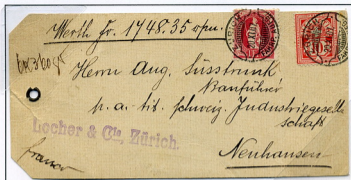 Werth Fr. 1748.35 rpn.
Herrn Aug. Süsstrunk
Bauführer
p. a. tit. schweiz. Industriegesell
schaft
Locher & Cie, Zürich.
franco
Neuhausen